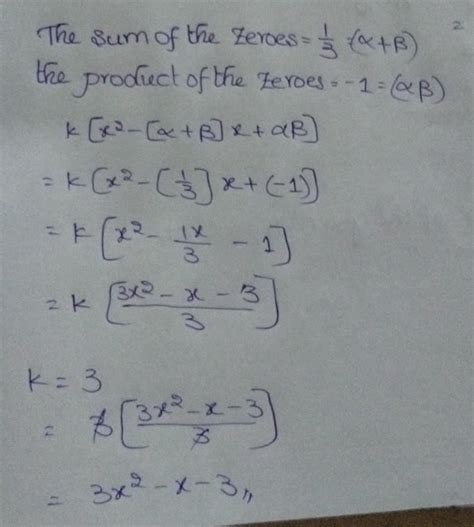 2
The sum of the zeroes = 1/3 (α+β)
the product of the zeroes = -1 = (αβ)
k[x²-[α+β]x+αβ]
= k[x²-[1/3]x+(-1)]
= k[x²- 1x/3 - 1]
= k[3x²-x-3/3]
k = 3
= 3[3x²-x-3/3]
= 3x²-x-3,,